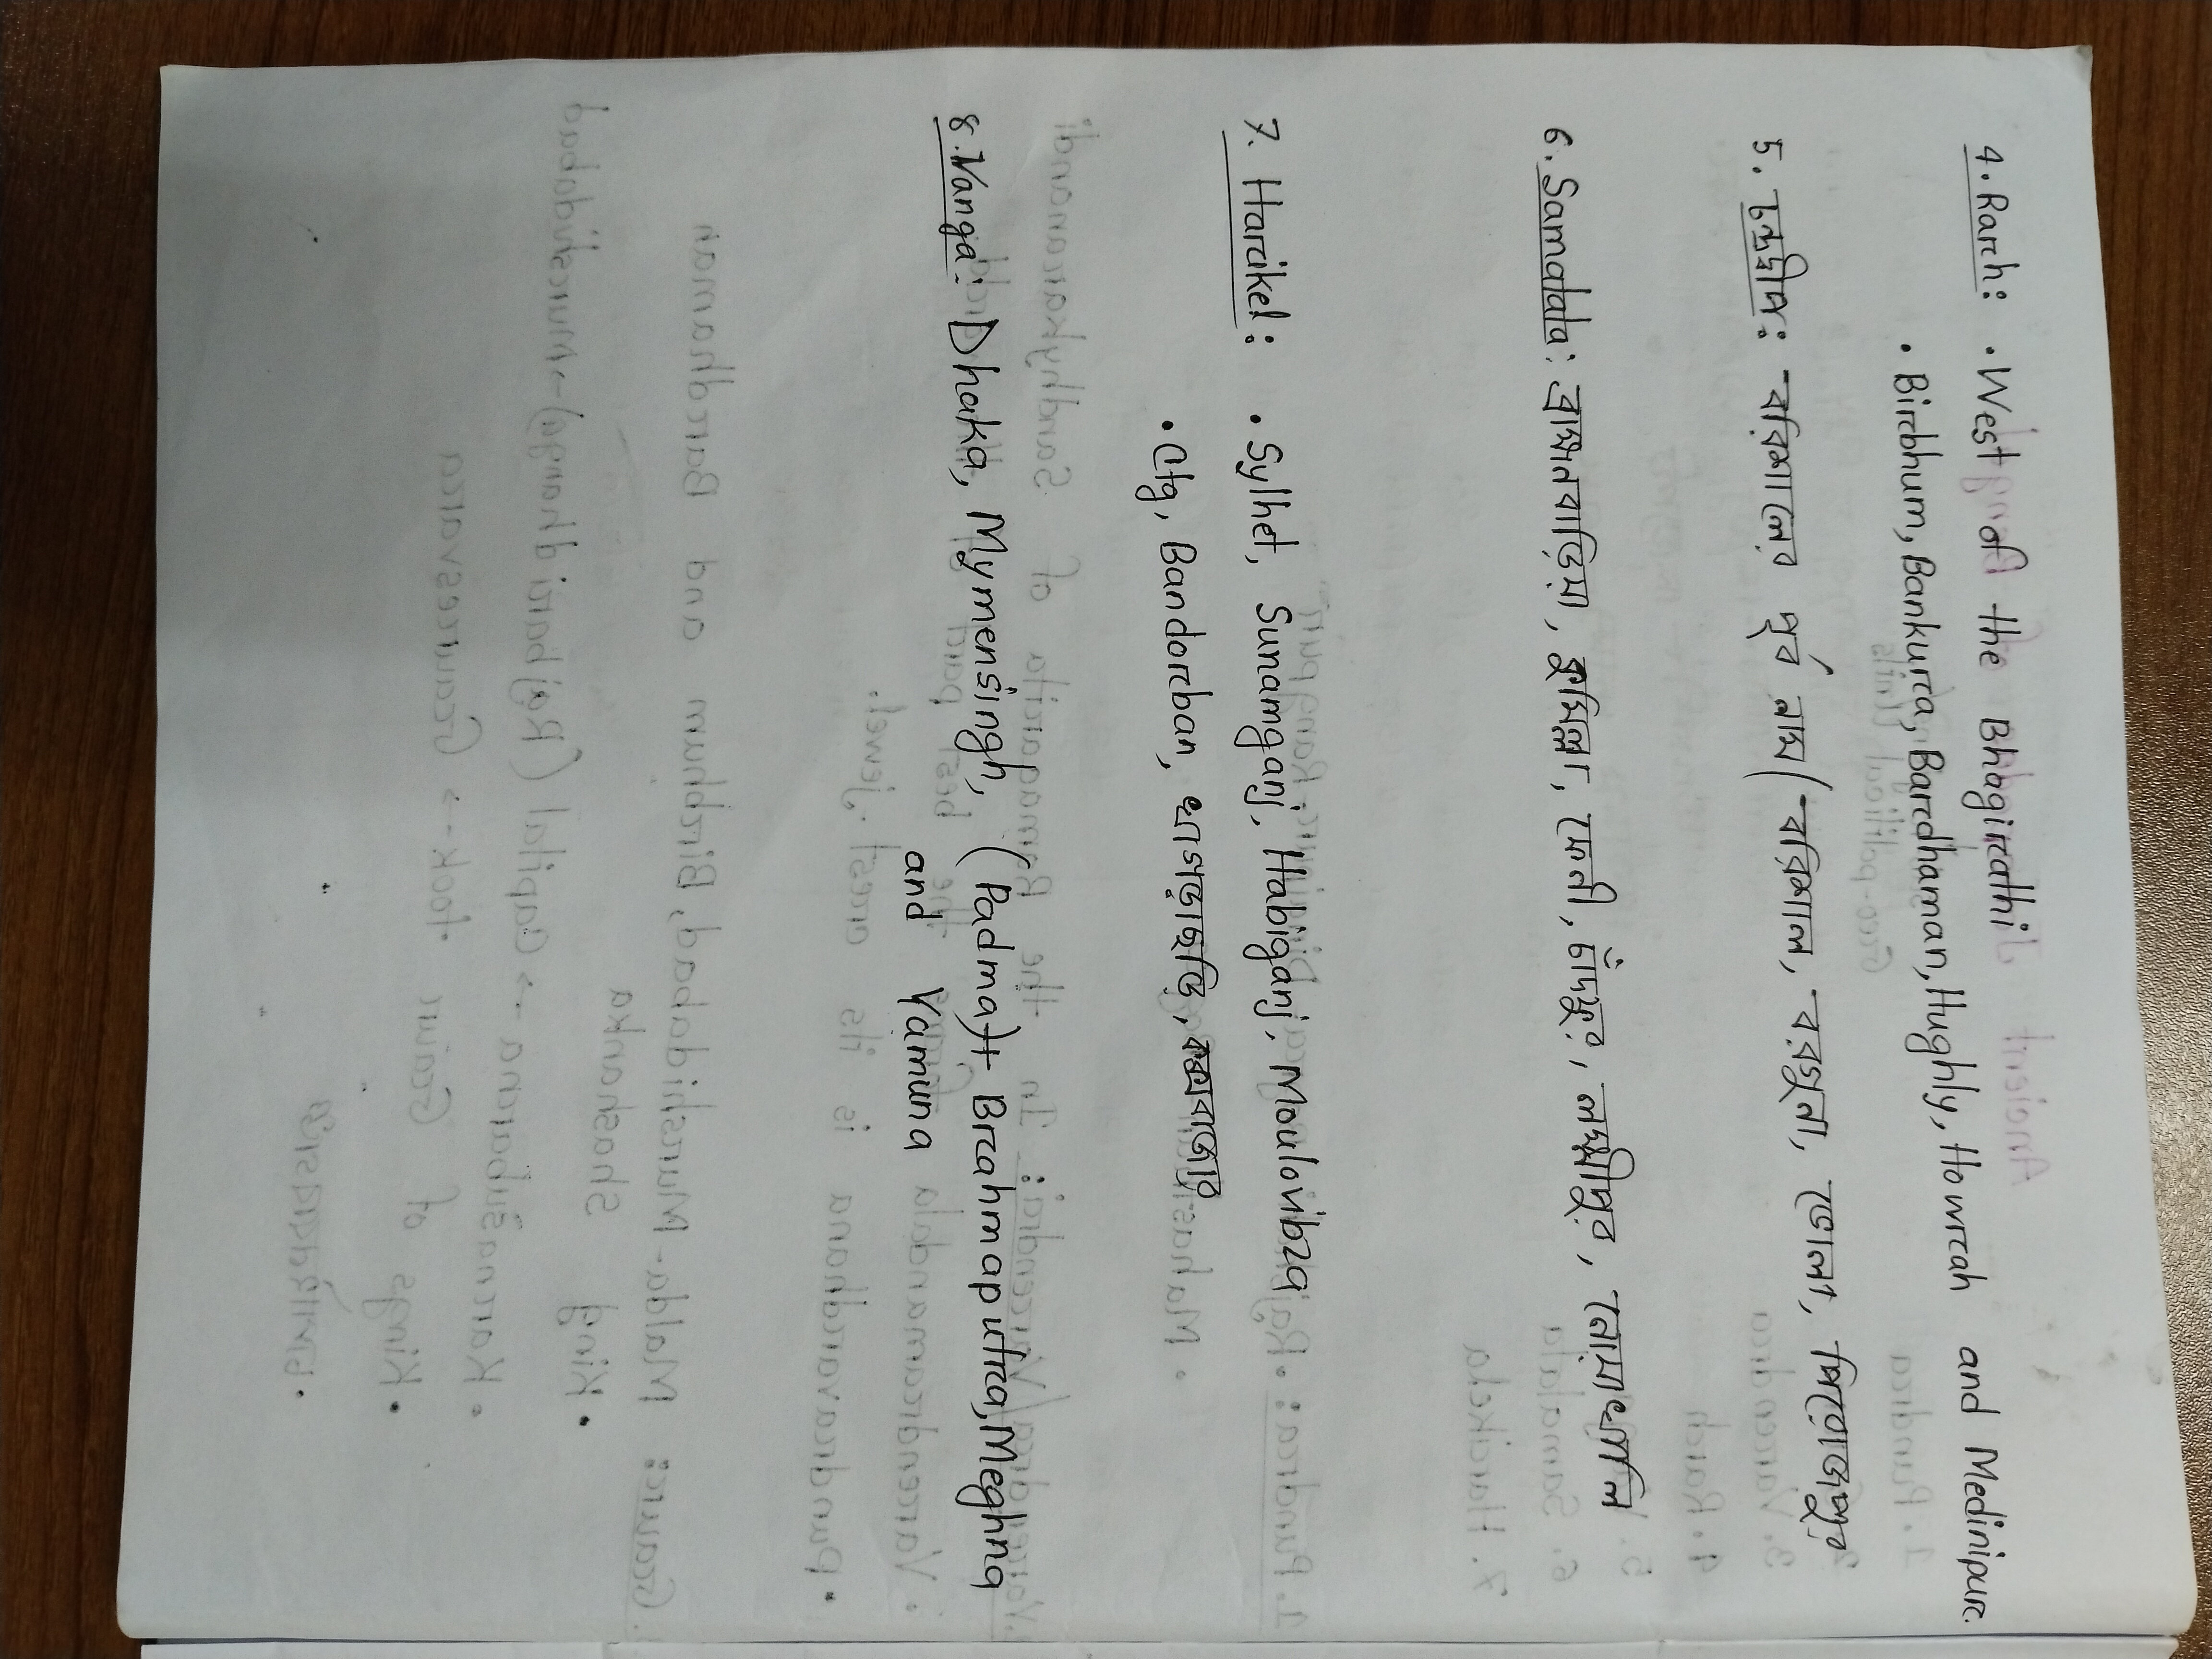 4. Rarh: • West of the Bhagirathi
• Birbhum, Bankura, Bardhaman, Hughly, Howrah and Medinipur.
5. চন্দ্রদ্বীপ: বরিশালের পূর্ব নাম (বরিশাল, বরগুনা, ভোলা, পিরোজপুর
6. Samatata: ব্রাহ্মনবাড়িয়া, কুমিল্লা, ফেনী, চাঁদফুর, লক্ষ্মীপুর, নোয়াখালি
7. Harikel: • Sylhet, Sunamganj, Habiganj, Moulovibza
• Ctg, Bandorban, খাগড়াছড়ি, কক্সবাজার
8. Vanga: Dhaka, Mymensingh, (Padma)+ Brahmaputra, Meghna
and Yamuna